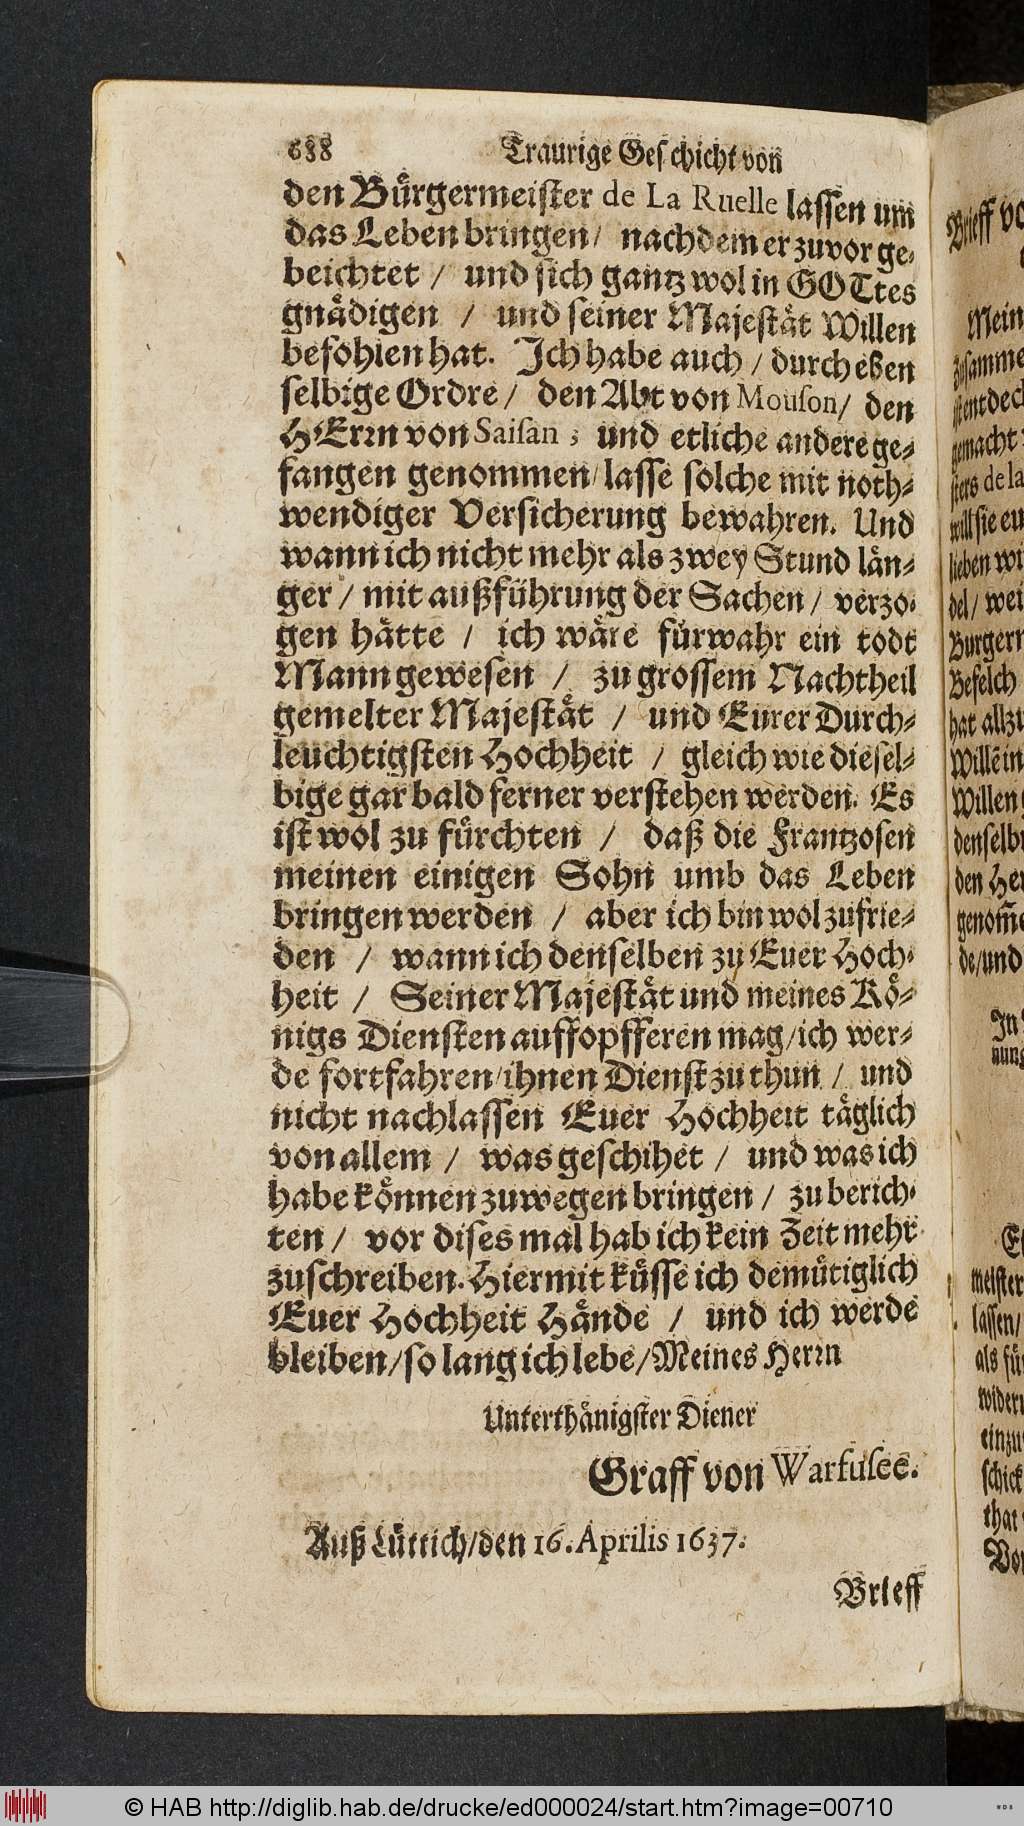 638 Traurige Geschicht von
den Bürgermeister de La Ruelle lassen um
das Leben bringen / nachdem er zuvor ge-
beichtet / und sich gantz wol in GOTtes
gnädigen / und seiner Majestät Willen
befohlen hat. Ich habe auch / durch eben
selbige Ordre / den Abt von Mouson / den
HErrn von Saisan; und etliche andere ge-
fangen genommen / lasse solche mit noth-
wendiger Versicherung bewahren. Und
wann ich nicht mehr als zwey Stund län-
ger / mit außführung der Sachen / verzo-
gen hätte / ich wäre fürwahr ein todt
Mann gewesen / zu grossem Nachtheil
gemelter Majestät / und Eurer Durch-
leuchtigsten Hochheit / gleich wie diesel-
bige gar bald ferner verstehen werden. Es
ist wol zu fürchten / daß die Frantzosen
meinen einigen Sohn umb das Leben
bringen werden / aber ich bin wol zufrie-
den / wann ich denselben zu Euer Hoch-
heit / Seiner Majestät und meines Kö-
nigs Diensten auffopfferen mag / ich wer-
de fortfahren / ihnen Dienst zu thun / und
nicht nachlassen Euer Hochheit täglich
von allem / was geschihet / und was ich
habe können zuwegen bringen / zu berich-
ten / vor dises mal hab ich kein Zeit mehr
zuschreiben. Hiermit küsse ich demütiglich
Euer Hochheit Hände / und ich werde
bleiben / so lang ich lebe / Meines Herrn
Unterthänigster Diener
Graff von Warfusee.
Auß Lüttich / den 16. Aprilis 1637.
Brieff
Brieff
Mein
zusamme
gemacht
sters de la
will sie
lieben
del / wei
Befelch
hat
Wille in
Willen
den
de / und
In
meister
lassen /
als
that
© HAB http://diglib.hab.de/drucke/ed000024/start.htm?image=00710